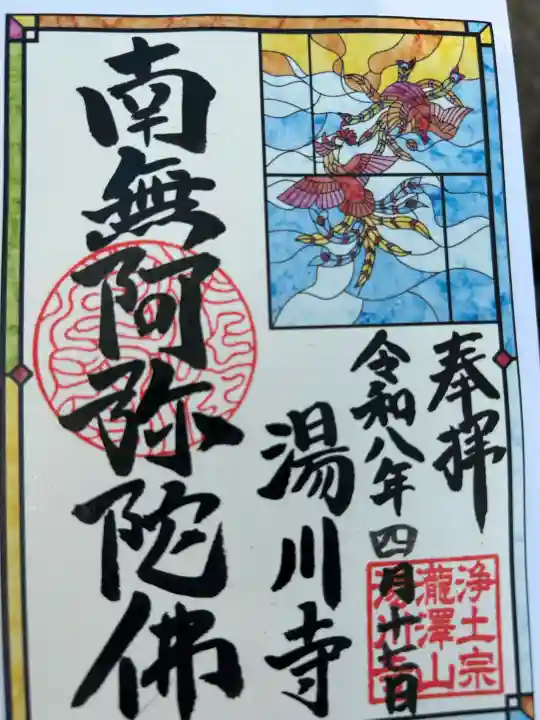 奉拝
令和八年四月十七日
浄土宗
瀧澤山
湯川寺
湯川寺
南無阿弥陀佛